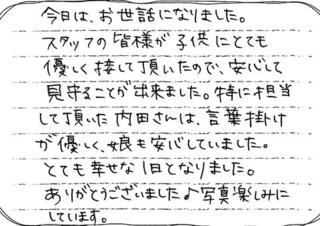 今日は、お世話になりました。
スタッフの皆様が子供にとても
優しく接して頂いたので、安心して
見守ることが出来ました。特に担当
して頂いた内田さんは、言葉掛け
が優しく、娘も安心していました。
とても幸せな1日となりました。
ありがとうございました♪写真楽しみに
しています。